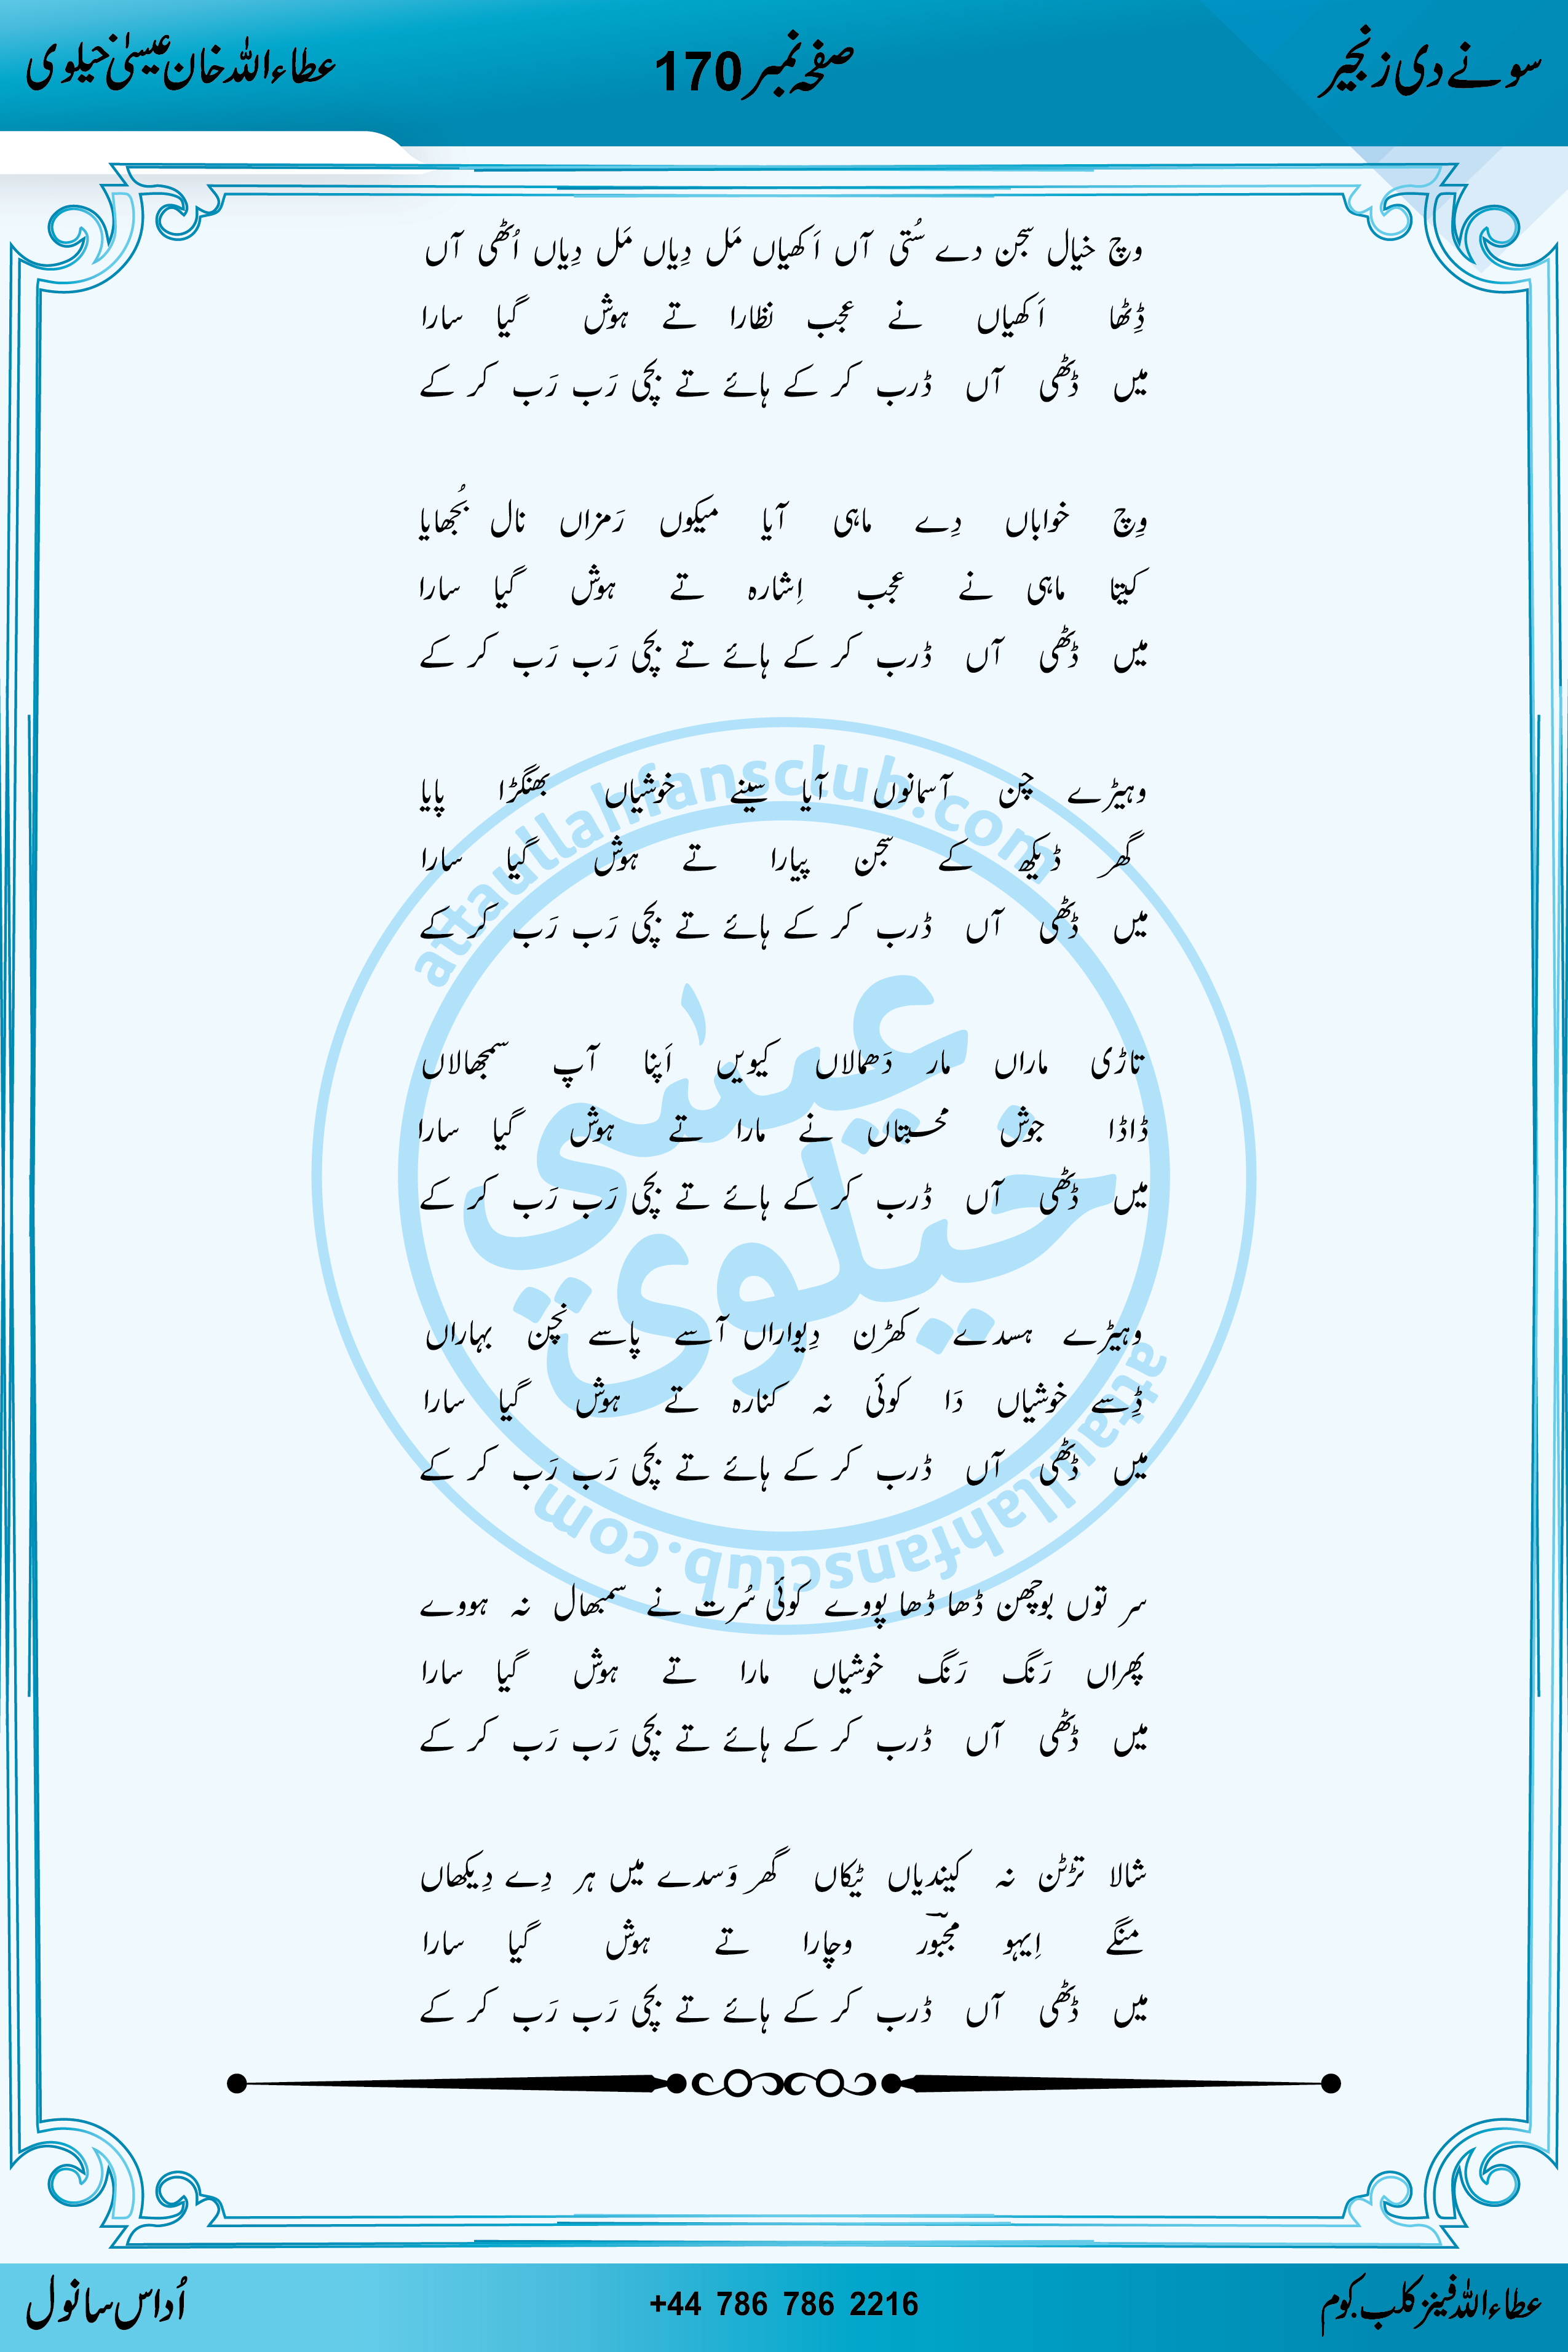 سونے دی زنجیر
صفحہ نمبر 170
عطاءاللہ خان عیسیٰ خیلوی
وچ خیال سجن دے سُتی آں اَکھیاں مَل دِیاں مَل دِیاں اُٹھی آں
ڈِٹھا اَکھیاں نے عجب نظارا تے ہوش گیا سارا
میں ڈٹھی آں ڈرب کر کے ہائے تے بچی رَب رَب کر کے
وِچ خواباں دِے ماہی آیا میکوں رَمزاں نال بُجھایا
کیتا ماہی نے عجب اِشارہ تے ہوش گیا سارا
میں ڈٹھی آں ڈرب کر کے ہائے تے بچی رَب رَب کر کے
وہیڑے چن آسمانوں آیا سینے خوشیاں بھنگڑا پایا
گھر ڈیکھ کے سجن پیارا تے ہوش گیا سارا
میں ڈٹھی آں ڈرب کر کے ہائے تے بچی رَب رَب کر کے
تاڑی ماراں مار دَھمالاں کیویں اَپنا آپ سمجھالاں
ڈاڈا جوش محبتاں نے مارا تے ہوش گیا سارا
میں ڈٹھی آں ڈرب کر کے ہائے تے بچی رَب رَب کر کے
وہیڑے ہسدے کھڑن دِیواراں آسے پاسے نچن بہاراں
ڈِسے خوشیاں دَا کوئی نہ کنارہ تے ہوش گیا سارا
میں ڈٹھی آں ڈرب کر کے ہائے تے بچی رَب رَب کر کے
سر توں بوچھن ڈھا ڈھا پووے کوئی سُرت نے سمبھال نہ ہووے
پھراں رَنگ رَنگ خوشیاں مارا تے ہوش گیا سارا
میں ڈٹھی آں ڈرب کر کے ہائے تے بچی رَب رَب کر کے
شالا تڑٹن نہ کیندیاں ٹیکاں گھر وَسدے میں ہر دِے دِیکھاں
منگے اِیہو مجبورؔ وچارا تے ہوش گیا سارا
میں ڈٹھی آں ڈرب کر کے ہائے تے بچی رَب رَب کر کے
attaullahfansclub.com
عیسٰی
خیلوی
attaullahfansclub.com
عطاءاللہ فینز کلب.کوم
+44 786 786 2216
اُداس سانول